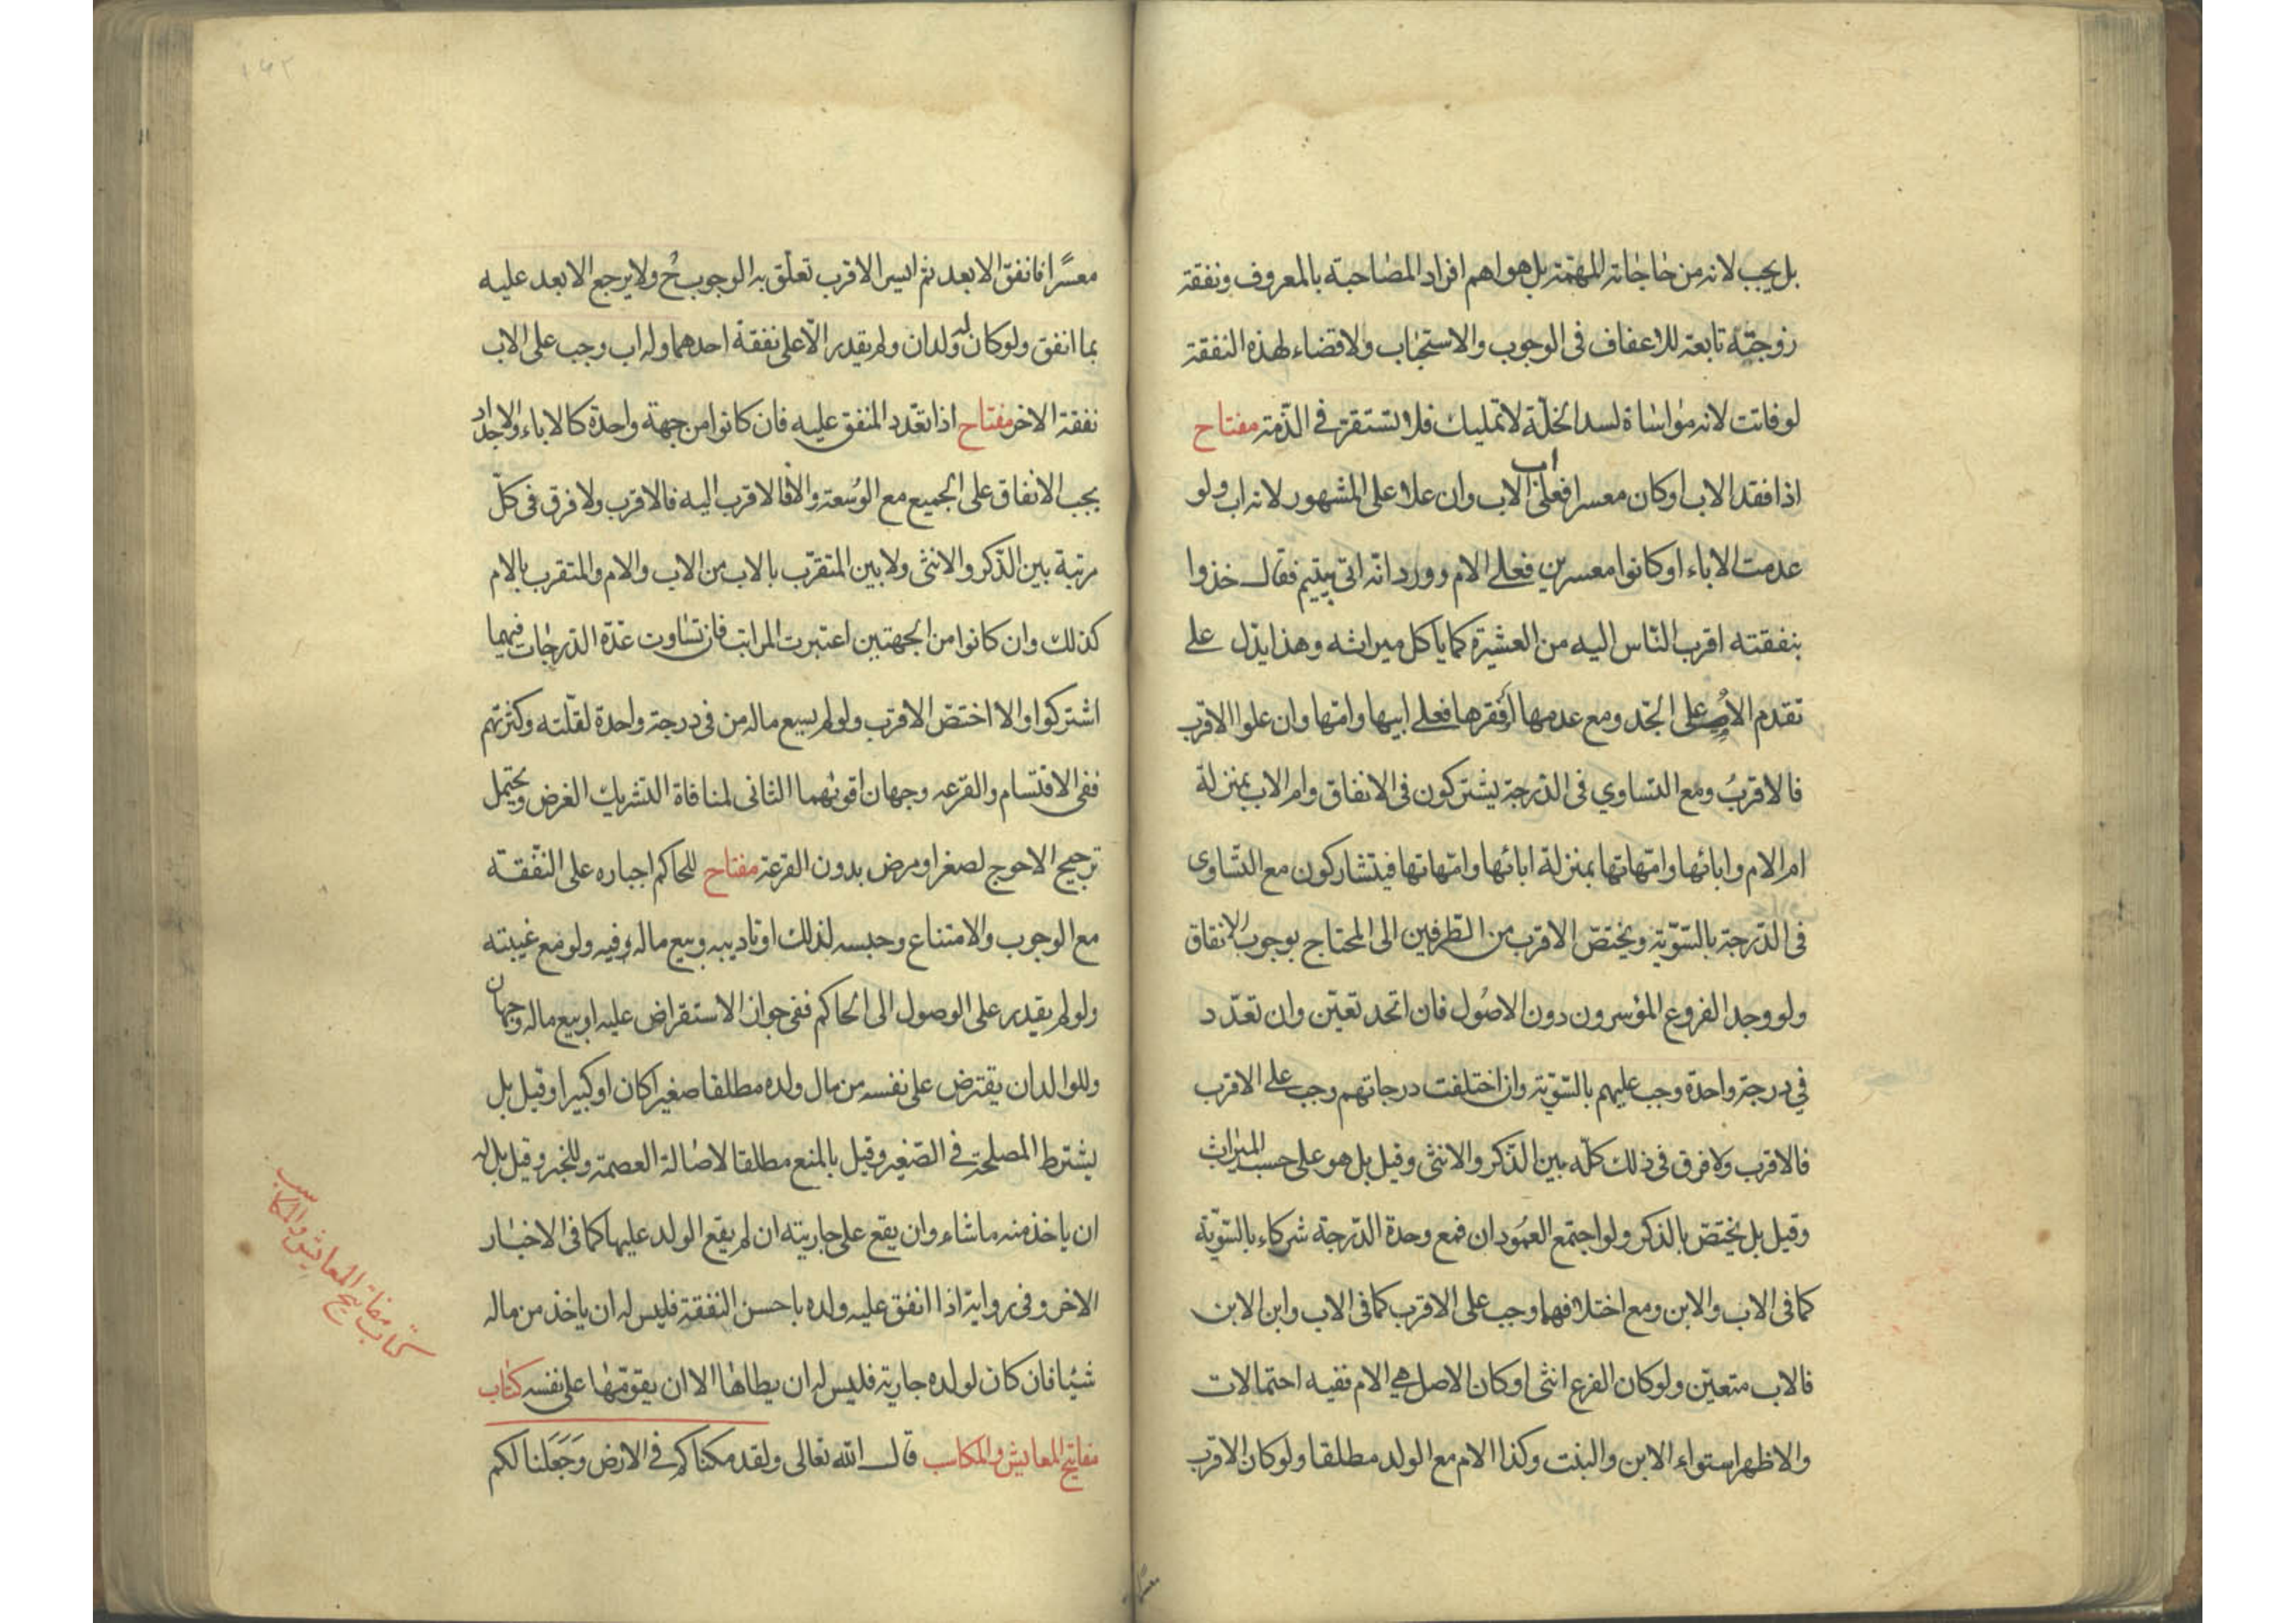 بل يجب لانه من حاجاته المهمّة بل هو اهم افراد المصاحبة بالمعروف ونفقة
زوجته تابعة للاعفاف فى الوجوب والاستحباب ولا قضاء لهذه النفقة
لو فاتت لانه مواساة لسد الخلّة لا تمليك فلا تستقرّ فى الذّمة مفتاح
اذا فقد الاب او كان معسرا فعلى اب الاب وان علا على المشهور لانه اب ولو
عدمت الاباء او كانوا معسرين فعلى الام وورد انّه اتى بيتيم فقال خذوا
بنفقته اقرب النّاس اليه من العشيرة كما يأكل ميراثه وهذا يدّل على
تقدم الام على الجّد ومع عدمها أَو فقرها فعلى ابيها وامّها وان علوا الاقرب
فالاقربُ ومع التساوي فى الدّرجة يشتركون فى الانفاق وام الاب بمنزلة
ام الام وابائها وامّهاتها بمنزلة ابائها وامّهاتها فيتشاركون مع التّساوى
فى الدّرجة بالسّويّة ويختصّ الاقرب من الطّرفين الى المحتاج بوجوب الانفاق
ولو وجد الفروع المؤسرون دون الاصُول فان اتّحد تعيّن وان تعدّد
في درجة واحدة وجب عليهم بالسّويّة وان اختلفت درجاتهم وجب على الاقرب
فالاقرب ولا فرق فى ذلك كلّه بين الذّكر والانثى وقيل بل هو على حسب الميراث
وقيل بل يختصّ بالذكر ولو اجتمع العمُودان فمع وحدة الدّرجة شركاء بالسّويّة
كما فى الاب والابن ومع اختلافهما وجب على الاقرب كما فى الاب وابن الابن
فالاب متعيّن ولو كان الفرع انثى او كان الاصل هي الام ففيه احتمالات
والاظهر استواء الابن والبنت وكذا الام مع الولد مطلقا ولو كان الاقرب
معسًرا فانفق الابعد ثم ايسر الاقرب تعلّق به الوجوب ح ولا يرجع الابعد عليه
بما انفق ولو كان له ولدان ولم يقدر الّا على نفقة احدهما وله اب وجب على الاب
نفقة الاخر مفتاح اذا تعّدد المنفق عليه فان كانوا من جهة واحدة كالاباء والاجداد
يجب الانفاق على الجميع مع الوُسعة والّا فالاقرب اليه فالاقرب ولا فرق فى كلّ
مرتبة بين الذّكر والانثى ولا بين المتقرّب بالاب من الاب والام والمتقرب بالام
كذلك وان كانوا من الجهتين اعتبرت المراتب فان تساوت عدّة الدّرجات فيهما
اشتركوا والا اختصّ الاقرب ولو لم يسع ماله من فى درجة واحدة لقلّته وكثرتهم
ففى الاقتسام والقرعه وجهان اقوٰهما الثانى لمنافاة التشريك الغرض ويحتمل
ترجيح الاحوج لصغر او مرض بدون القرعة مفتاح للحاكم اجباره على النّفقة
مع الوجوب والامتناع وحبسه لذلك او تاديبه وبيع ماله وفيه ولو مع غيبته
ولو لم يقدر على الوصول الى الحاكم ففى جواز الاستقراض عليه او بيع ماله وجهان
وللوالد ان يقترض على نفسه من مال ولده مطلقا صغيرا كان او كبيرا وقيل بل
يشترط المصلحة فى الصّغير وقيل بالمنع مطلقا لاصالة العصمة وللخبر وقيل بل له
ان ياخذ منه ما شاء وان يقع على جاريته ان لم يقع الولد عليها كما فى الاخبار
الاخر وفى رواية اذا انفق عليه ولده باحسن النفقة فليس له ان ياخذ من ماله
شيئا فان كان لولده جارية فليس له ان يطاها الا ان يقوّمها على نفسه كتاب
مفاتيح المعايش والمكاسب قال الله تعالى ولقد مكناكم فى الارض وَجَعَلنا لكم
كتاب مفاتيح المعايش والمكاسب
معسرًا
١٤٢